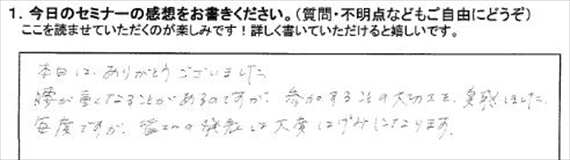 1. 今日のセミナーの感想をお書きください。（質問・不明点などもご自由にどうぞ）
ここを読ませていただくのが楽しみです！詳しく書いていただけると嬉しいです。
本日は、ありがとうございました。
腰が重くなることがあるのですが、参加することの大切さを、実感しました。
毎度ですが、皆さんの発表は大変はげみになります。